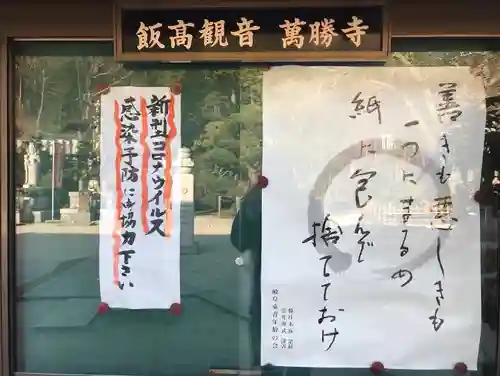 飯高観音 萬勝寺
善きも悪しきも
一つにまるめ
紙に包んで
捨てておけ
岐阜東青年僧の会
新型コロナウイルス
感染予防に御協力下さい